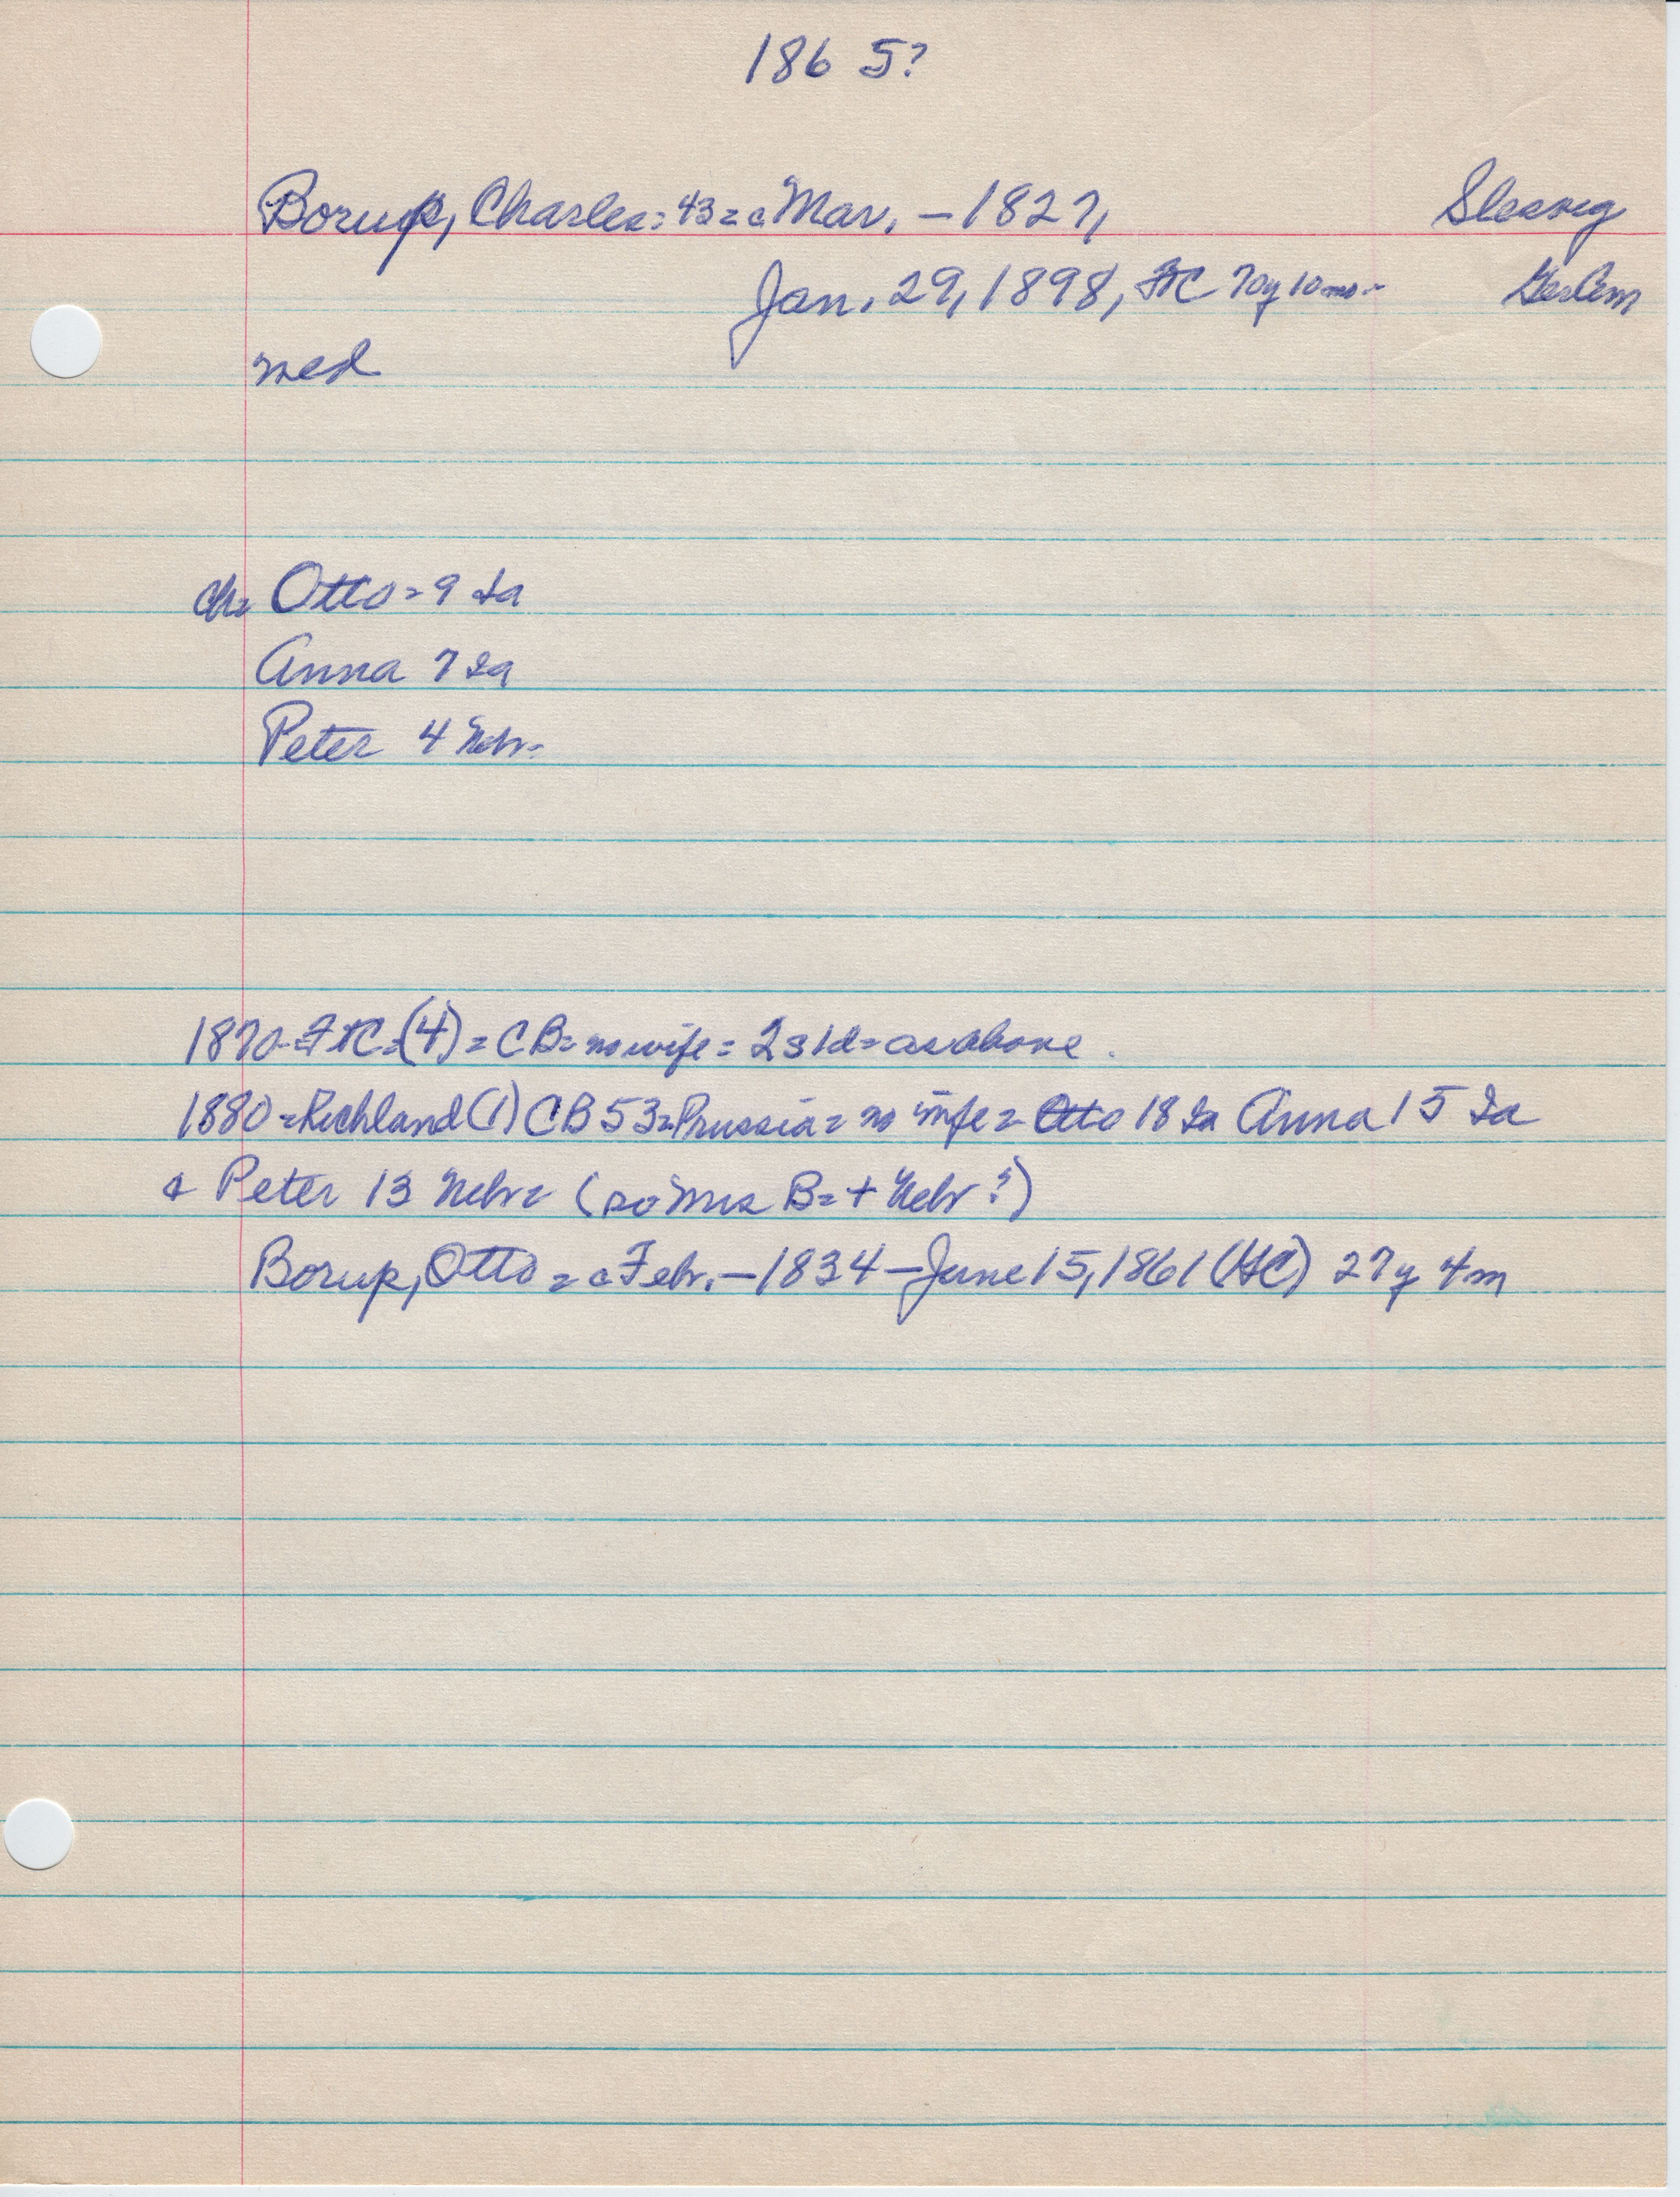 186 5?
Borup, Charles = 43 = c Mar. – 1827, Slesvig
Jan. 29, 1898, FtC 70y 10 mo -
med
ch = Otto = 9 Ia
Anna 7 Ia
Peter 4 Nebr.
1870 - FtC - (4) = CB = no wife = 2 s 1 d = as above.
1880 = Richland (1) CB 53 = Prussia = no wife = Otto 18 Ia Anna 15 Ia
& Peter 13 Nebr = (so Mrs B = + Nebr?)
Borup, Otto = c Febr. – 1834 – June 15, 1861 (FtC) 27 y 4 m